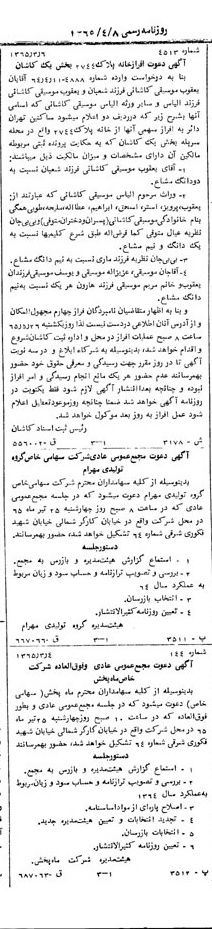 روزنامه رسمی ۱۳۶۵/۴/۸
شماره ۴۵۱۳ ۱۳۶۵/۳/۶
آگهی دعوت افراز خانه پلاک ۲۷۴۴ بخش یک کاشان
بنا به درخواست وارده شماره ۴۸۸۸-۶۴/۴/۱۱ آقایان
یعقوب موسیقی کاشانی فرزند شعبان و یعقوب موسیقی کاشانی
فرزند الیاس و سایر ورثه الیاس موسیقی کاشانی که اسامی
آنها بشرح زیر که در ردیف دو اعلام میشود ساکنین تهران
دائر به افراز سهمی آنها از خانه پلاک ۲۷۴۴ واقع در محله
سرپله بخش یک کاشان که به حکایت پرونده ثبتی مربوطه
مالکین آن دارای مشخصات و میزان مالکیت ذیل میباشند:
۱- آقای یعقوب موسیقی کاشانی فرزند شعبان نسبت به
دودانگ مشاع.
۲- وراث مرحوم الیاس موسیقی کاشانی که عبارتند از:
یعقوب، پرویز، استر، اسحق، ابراهیم، عطااله، صلحه، طوبی همگی
بنام خانوادگی موسیقی کاشانی (پسران و دختران متوفی) و بی‌بی‌جان
نظریه عیال متوفی کما فرض‌اله طبق شرع کلیمیها نسبت به
یک دانگ و نیم مشاع.
۳- بی‌بی‌جان نظریه فرزند ماری نسبت به نیم دانگ مشاع.
۴- آقاجان موسیقی، عزیزاله موسیقی و یوسف موسیقی فرزندان
یعقوب و خانم مریم موسیقی فرزند هارون هر یک نسبت به نیم
دانگ مشاع.
و بنا به اظهار متقاضیان نامبردگان فراز چهارم مجهول‌المکان
و از آدرس آنان اطلاعی در دست نیست لذا روز یکشنبه ۶۵/۵/۲۶
ساعت ۸ صبح عملیات افراز در محل و اداره ثبت کاشان شروع
و اقدام خواهد شد، بدینوسیله به شرکاء ابلاغ و در سه نوبت
آگهی تا در روز مقرر جهت رسیدگی و معرفی حقوق خود حضور
بهمرسانند عدم حضور هر یک مانع انجام رسیدگی و امر افراز
نبوده و چنانچه بعداً انتشار آگهی لازم شود فقط یکنوبت در
روزنامه آگهی خواهد شد ضمناً چنانچه روز موعود تعطیل اعلام
شود عمل افراز به روز بعد موکول خواهد شد.
رئیس ثبت اسناد کاشان
ش - ۳۱۷۸ ۳-۱ ق-۵۵۶۰۲۰
آگهی دعوت مجمع عمومی عادی شرکت سهامی خاص گروه
تولیدی مهرام
بدینوسیله از کلیه سهامداران محترم شرکت سهامی خاص
گروه تولیدی مهرام دعوت میشود که در جلسه مجمع عمومی
عادی که در ساعت ۸ صبح روز چهارشنبه ۲۵ تیر ماه ۶۵
در محل شرکت واقع در خیابان کارگر شمالی خیابان شهید
فکوری شرقی شماره ۶۴ تشکیل خواهد شد، حضور بهمرسانند.
دستور جلسه
۱- استماع گزارش هیئت‌مدیره و بازرس به مجمع.
۲- بررسی و تصویب ترازنامه و حساب سود و زیان مربوط
به عملکرد سال ۶۴
۳- انتخاب بازرسان.
۴- تعیین روزنامه کثیرالانتشار.
هیئت‌مدیره گروه تولیدی مهرام
پ - ۳۵۱۱ ۳-۱ ق-۶۶۷۰۶۶
شماره ۱۴۴ ۱۳۶۵/۳/۴
آگهی دعوت مجمع عمومی عادی و فوق‌العاده شرکت
خاص ماه پخش
بدینوسیله از کلیه سهامداران محترم ماه پخش (سهامی
خاص) دعوت میشود که در جلسه مجمع عمومی عادی و بطور
فوق‌العاده که در ساعت ۱۰ صبح روز چهارشنبه ۲۵ تیر ماه
۶۵ در محل شرکت واقع در خیابان کارگر شمالی خیابان شهید
فکوری شرقی شماره ۶۴ تشکیل خواهد شد، حضور بهمرسانند
دستور جلسه
۱- استماع گزارش هیئت‌مدیره و بازرس به مجمع.
۲- بررسی و تصویب ترازنامه و حساب سود و زیان مربوط
به عملکرد سال ۱۳۶۴
۳- اصلاح پاره‌ای از مواد اساسنامه.
۴- تجدید انتخابات و تعیین هیئت‌مدیره جدید.
۵- انتخابات بازرسان.
۶- تعیین روزنامه کثیرالانتشار.
هیئت‌مدیره شرکت ماه پخش.
پ - ۳۵۱۲ ۳-۱ ق-۶۸۷۰۶۳